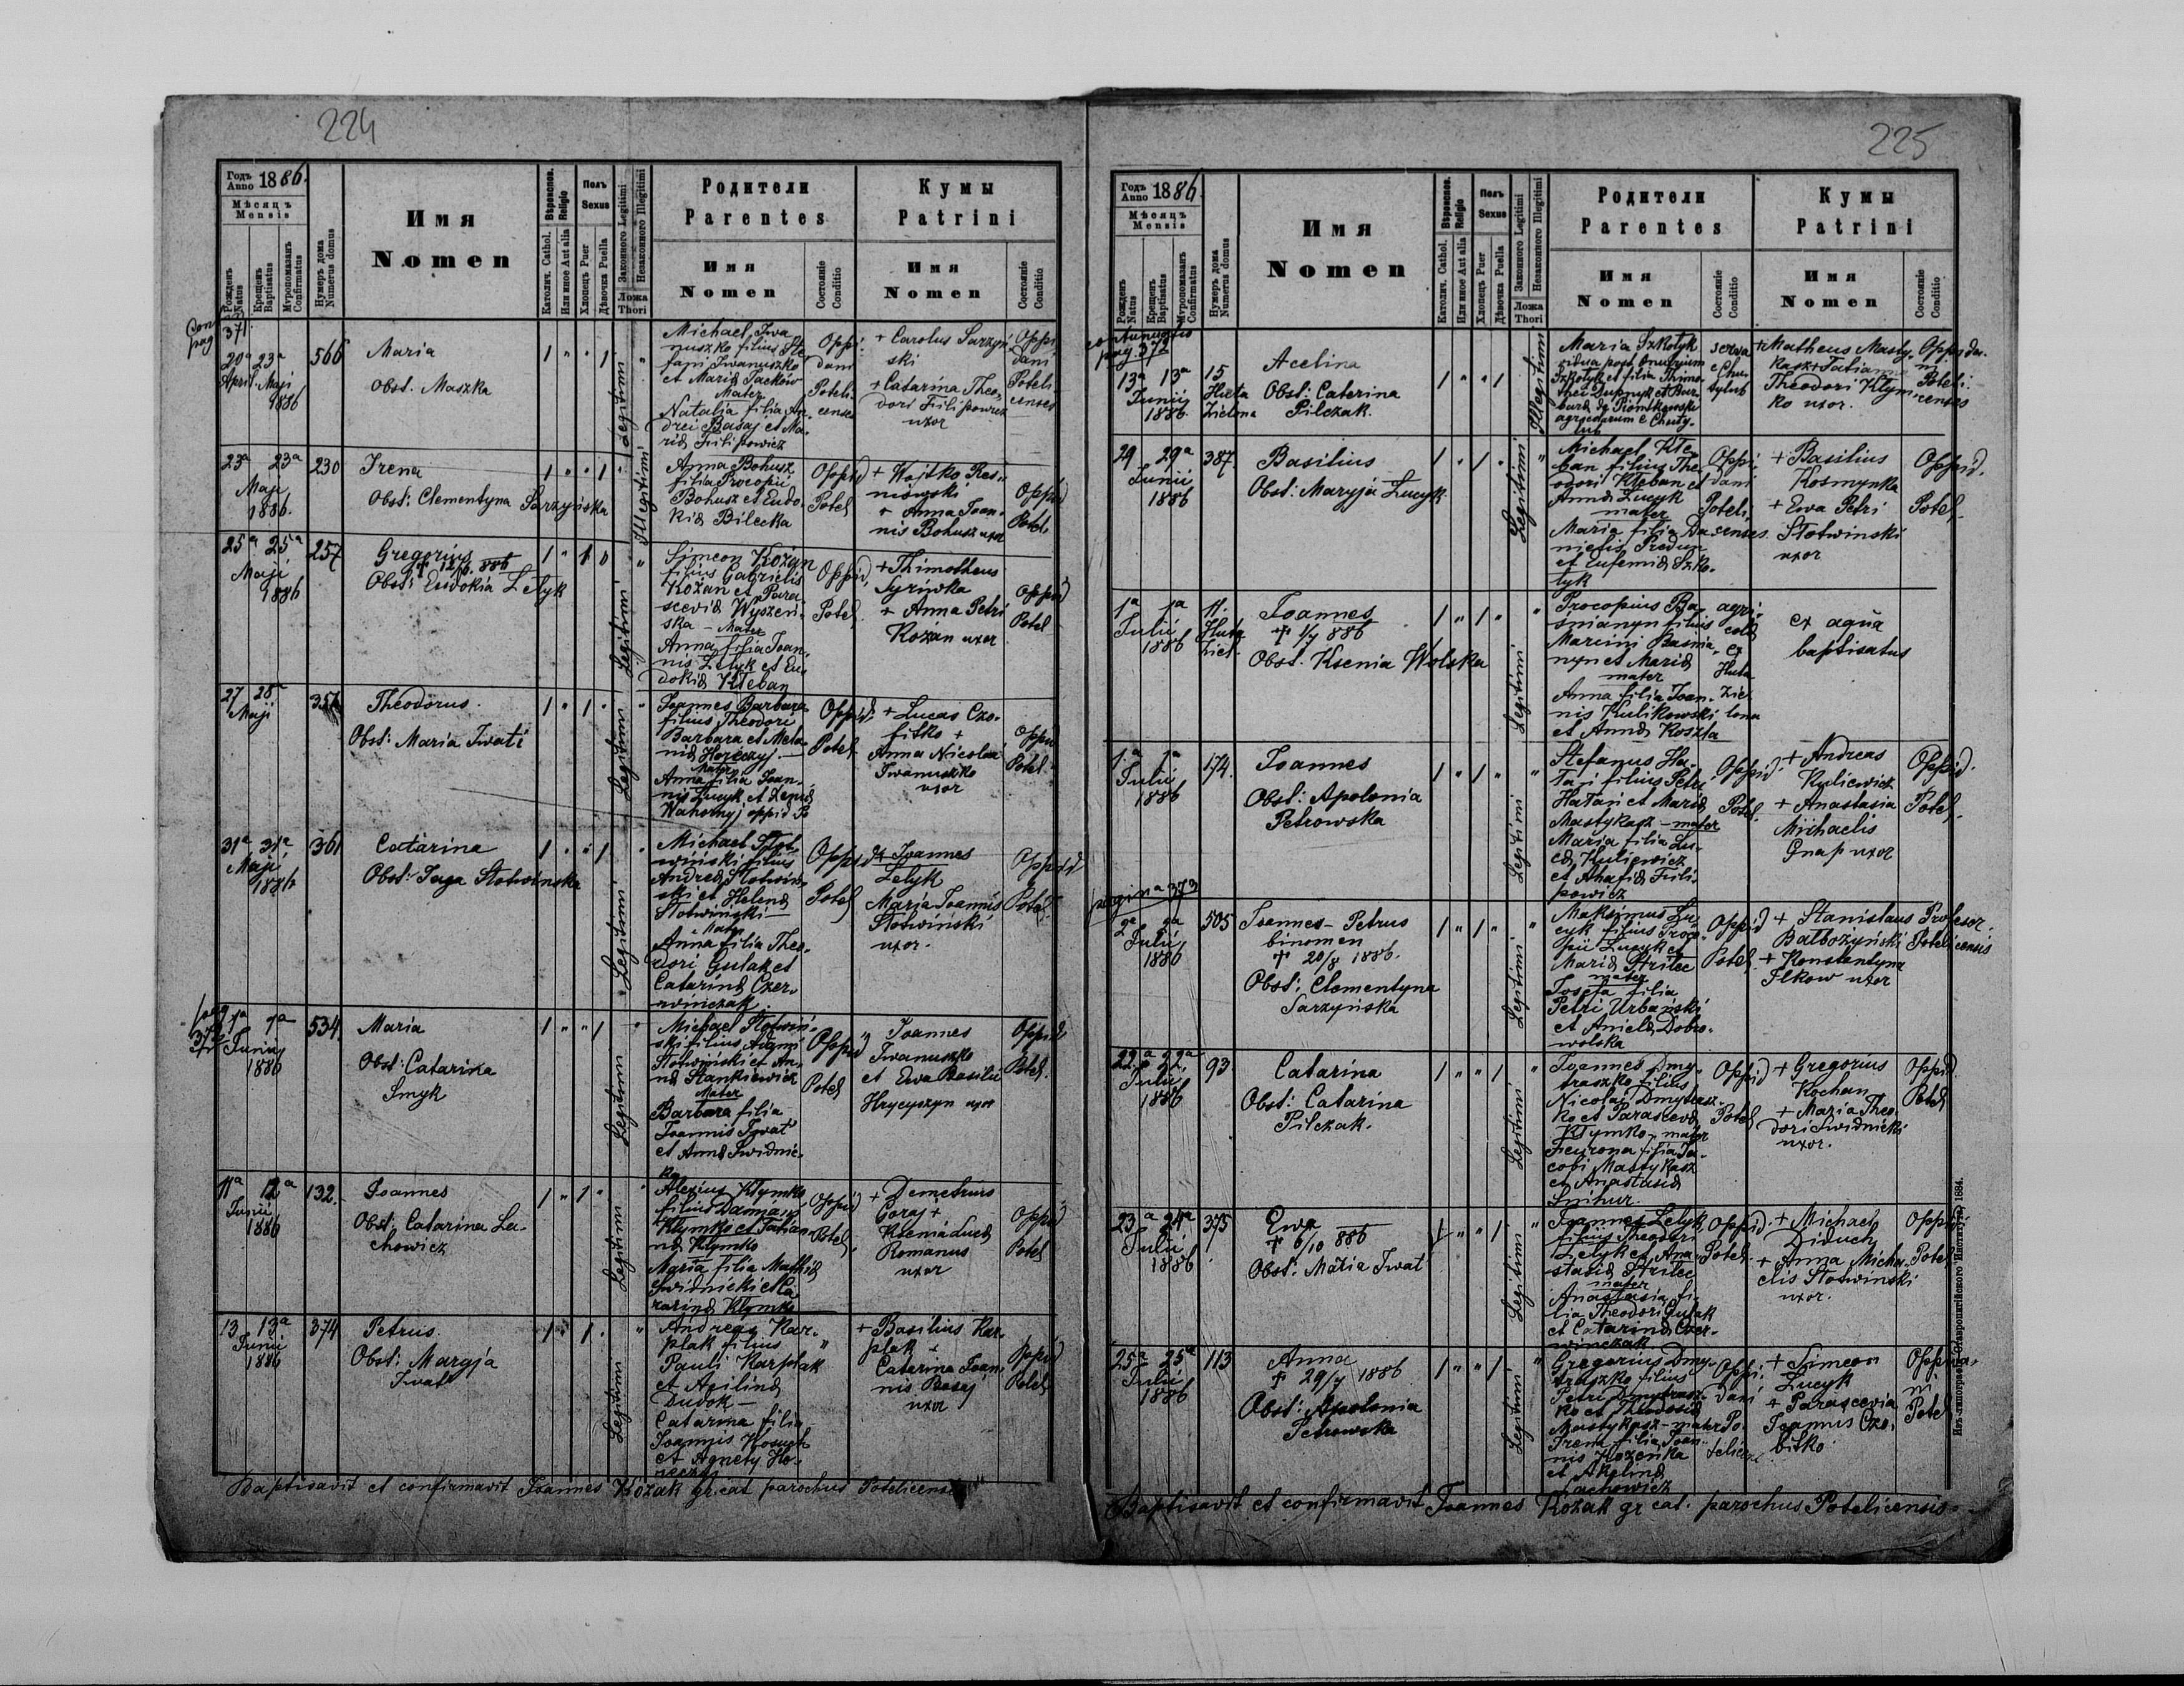 224
Годъ
Anno 1886.
Мѣсяцъ
Mensis
Рожденъ
Natus
Крещенъ
Baptisatus
Мѵропомазанъ
Confirmatus
Нумеръ дома
Numerus domus
Имя
Nomen
Вѣроиспов.
Religio
Католич. Cathol.
Или иное Aut alia
Полъ
Sexus
Хлопецъ Puer
Дѣвочка Puella
Законного Legitimi
Незаконного Illegitimi
Ложа
Thori
Родители
Parentes
Имя
Nomen
Состояніе
Conditio
Кумы
Patrini
Имя
Nomen
Состояніе
Conditio
pag 371.
20a 23a
April. Maji
1886
566
Maria
Obst. Maszka
1 " " 1
Legitimi
Michael Iwa
nuszko filius Ste
fani Iwanuszko
et Maria Jacków
Mater
Natalia filia An
drei Basaj et Ma
ria Filipowicz
Oppi
dani
Poteli
censes
+ Carolus Sarzyń
ski
+ Catarina Theo
dori Filipowicz
uxor
Oppi
dani
Poteli
censes
23a 23a
Maji
1886.
230
Irena
Obst: Clementyna Sarzyńska
1 " " 1
Illegitimi
Anna Bohusz
filia Procopii
Bohusz et Eudo
kia Bilecka
Oppid
Potel
+ Wojtko
+ Anna Joan
nis Bohusz uxor
Oppid
Poteli.
25a 25a
Maji
1886
257
Gregorius
Obst: Eudokia Lelyk
Legitimi
Simeon Kożan
filius Gabrielis
Kożan et Para
scevia Wyszeń
ska - Mater
Anna filia Joan
nis Lelyk et Eu
dokia Kleban
Oppid,
Potel,
+ Thimotheus
Syriwka
+ Anna Petri
Kożan uxor
Oppid
Potel
27 28a
Maji
357
Theodorus.
Obst: Maria Iwati
1 " 1 "
Legitimi
Joannes Barbara
filius Theodori
Barbara et Mela
nia Horeczyj.
Mater
Anna filia Joan
nis Lucyk et Xenia
Oppid.
Potel
+ Lucas Czo
fitko +
Anna Nicolai
Iwanuszko
uxor
Oppid
Potel.
31a 31a
Maji
1886
361
Catarina
Obst: Juga Słotwińska
1 " " 1
Legitimi
Michael Słot
wiński filius
Andrea Słotwiń
ski et Helena
Słotwiński
Mater
Anna filia Theo
dori Gulak et
Catarina Czer
wińczak.
Oppid
Potel
+ Joannes
Lelyk
Maria Joannis
Słotwiński
uxor.
Oppid
Potel
pag 372
7a 7a
Junii
1886
534
Maria
Obst: Catarina
Smyk
1 " " 1
Legitimi
Michael Słotwiń
ski filius
Słotwiński et An
na Stankiewicz
Mater
Barbara filia
Joannis Iwat
et Anna Swidnic
ka
Oppid
Potel
" Joannes
Iwanuszko
et Ewa Basilii
Hrycyszyn uxor
Oppid
Potel.
11a 12a
Junii
1886
132.
Joannes
Obst: Catarina La
chowicz
1 " 1 "
Legitimi
Alexius Klymko
filius Damiani
Klymko et Tatian
na Klymko
Maria filia Mathia
Swidnicki et Ca
tarina Klymko
Oppid
Potel.
+ Demetrius
Goraj +
Xenia Luca
Romanus
uxor
Oppid
Potel
13 13a
Junii
1886
374
Petrus.
Obst: Maryja
Iwat
1 " 1 "
Legitimi
Andreas Kar
plak filius
Pauli Karplak
et Axilina
Dudok -
Catarina filia
Joannis Kosuch
et Agnety Ho
reczyj
+ Basilius Kar
plak +
Catarina Joan
nis Basaj
uxor
Oppid
Potel
Baptisavit et confirmavit Joannes Kożak gr. cat parochus Potelicensis
225
Годъ
Anno 1886.
Мѣсяцъ
Mensis
Рожденъ
Natus
Крещенъ
Baptisatus
Мѵропомазанъ
Confirmatus
Нумеръ дома
Numerus domus
Имя
Nomen
Вѣроиспов.
Religio
Католич. Cathol.
Или иное Aut alia
Полъ
Sexus
Хлопецъ Puer
Дѣвочка Puella
Законного Legitimi
Незаконного Illegitimi
Ложа
Thori
Родители
Parentes
Имя
Nomen
Состояніе
Conditio
Кумы
Patrini
Имя
Nomen
Состояніе
Conditio
continuatio
pag 372
13a 13a
Junii
1886
15
Huta
Zielona
Acelina
Obst: Caterina
Pilczak.
1 " " 1
Illegitimi
Maria Szkołyk
vidua post Onufrium
Szkołyk et filia Thimo
thei Dupnyk et Bar
bara de
serva
+ Matheus Masty
kasz + Tatianna
Theodori Klym
ko uxor.
Oppida
ni
Poteli
censes
29 29a
Junii
1886
387.
Basilius
Obst: Maryja Lucyk
1 " 1 "
Legitimi
Michael Kle
ban filius The
odori Kleban et
Anna Lucyk
mater
Maria filia Da
nielis Predun
et Eufemia Szko
łyk
Oppi
dani
Poteli
censes
+ Basilius
Kosmynka
+ Ewa Petri
Słotwinski
uxor
Oppid.
Potel.
1a 1a
Julii
1886
11.
Huta
Ziel.
Joannes
+ 1/7 886
Obst. Ksenia Wolska
1 " 1 "
Legitimi
Procopius Ba
snianyn filius
Marcini Basnia
nyn et Maria
mater
Anna filia Joan
nis Kulikowski
et Anna Koszla
agri
cola
ex
Huta
Zie
lona
ex aqua
baptisatus
1a 1a
Julii
1886
174.
Joannes
Obst: Apolonia
Petrowska
1 " 1 "
Legitimi
Stefanus Ha
łan filius Petri
Hałan et Maria
Mastykasz - mater
Maria filia Lu
ca Kuliewicz
et Ahafia Fili
powicz
Oppid.
Potel.
+ Andreas
Kuliewicz
+ Anastasia
Michaelis
Gnap uxor
Oppid.
Potel.
pagina 373
2a 9a
Julii
1886
505
Joannes - Petrus
binomen
+ 20/8 1886.
Obst: Clementyna
Sarzyńska
1 " 1 "
Legitimi
Maksimus Lu
cyk filius Proco
pii Lucyk et
Maria Strilec
mater
Josefa filia
Petri Urbański
et Aniela Dobro
wolska
Oppid
Potel.
+ Stanislaus
Balbożyński
+ Konstantyna
Ilkow uxor
Profesor.
Potelicensis
22a 22a
Julii
1886
93.
Catarina
Obst: Catarina
Pilczak.
1 " " 1
Legitimi
Joannes Dmy
traszko filius
Nicolai Dmytrasz
ko et Parascevia
Klymko - mater
Fewrona filia Ja
cobi Mastykasz
et Anastasia
Snihur.
Oppid
Potel
+ Gregorius
Kochan
+ Maria Theo
dori Swidnicki
uxor.
Oppid.
Potel
23a 24a
Julii
1886
375
Ewa
+ 6/10 886
Obst: Maria Iwat
1 " " 1
Legitimi
Joannes Lelyk
filius Theodori
Lelyk et Ana
stasia Strilec
mater
Anastasia fi
lia Theodori Gulak
et Catarina Czer
winczak
Oppid.
Potel.
+ Michael
Diduch
+ Anna Micha
elis Słotwinski
uxor.
Oppid
Potel
25a 25a
Julii
1886
113
Anna
+ 29/7 1886
Obst: Apolonia
Petrowska
1 " " 1
Legitimi
Gregorius Dmy
traszko filius
Petri Dmytrasz
ko et Theodosia
Mastykasz - mater
Irena filia Joan
nis Kożenka
et Akelina
Lachowicz
Oppi
dani
Po
+ Simeon
Lucyk
+ Parascevia
Joannis Czo
bitko
Oppida
ni
Potel
Baptisavit et confirmavit Joannes Kożak gr cat. parochus Potelicensis.
Изъ типографіи Ставропигійского Института 1884.